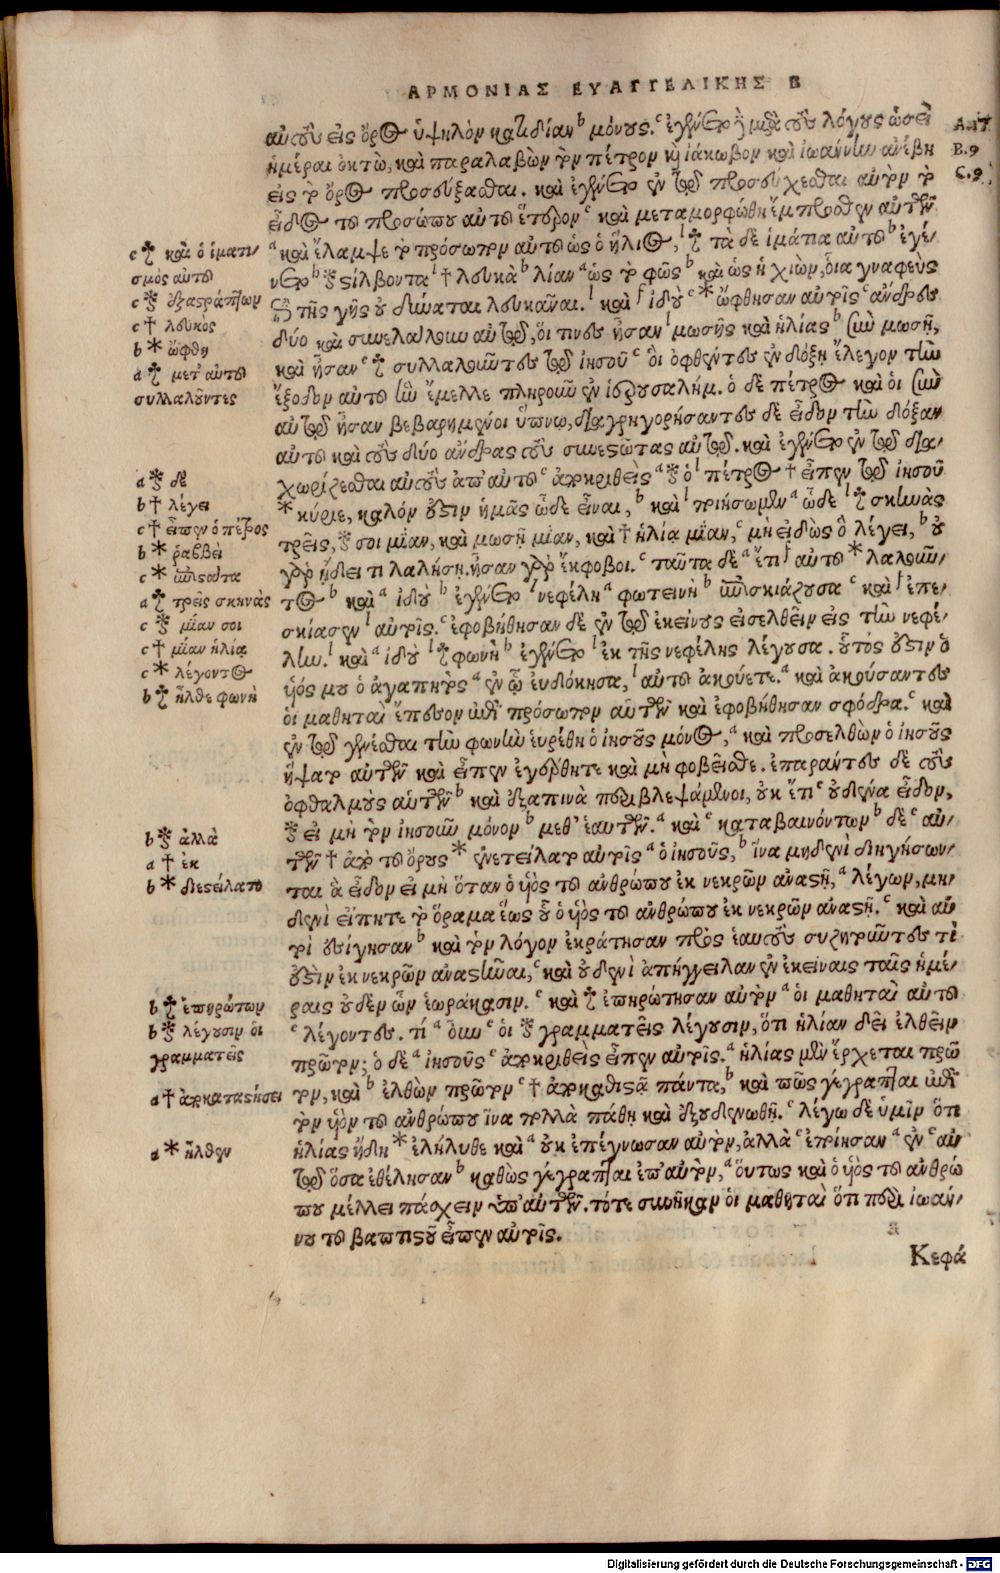 ΑΡΜΟΝΙΑΣ ΕΥΑΓΓΕΛΙΚΗΣ Β
αὐτοὺς εἰς ὄρος ὑψηλὸν κατιδίαν ᵇ μόνους. ᶜ ἐγένετο ἢ μετὰ τοὺς λόγους ὡσεὶ
A. 17.
ἡμέραι ὀκτὼ, καὶ παραλαβὼν τὸν πέτρον καὶ ἰάκωβον καὶ ἰωάννην ἀνέβη
B. 9
εἰς τὸ ὄρος προσεύξασθαι. καὶ ἐγένετο ἐν τῷ προσεύχεσθαι αὐτὸν τὸ
C. 9.
εἶδος τοῦ προσώπου αὐτοῦ ἕτερον ᶜ καὶ μεταμορφώθη ἔμπροσθεν αὐτῶν
ᵃ καὶ ἔλαμψε τὸ πρόσωπον αὐτοῦ ὡς ὁ ἥλιος, ˡ ‡ τὰ δὲ ἱμάτια αὐτοῦ ᵇ ἐγέ/
νετο ᵇ § στίλβοντα ˡ † λευκὰ ᵇ λίαν ᵃ ὡς τὸ φῶς ᵇ καὶ ὡς ἡ χιὼν, οἷα γναφεὺς
ἐπὶ τῆς γῆς οὐ δύναται λευκᾶναι. ˡ καὶ ˡ ἰδοὺ ᶜ * ὤφθησαν αὐτοῖς ᶜ ἄνδρες
δύο καὶ συνελάλουν αὐτῷ, οἵ τινες ἦσαν ˡ μωσῆς καὶ ἡλίας ᵇ σὺν μωσῇ,
καὶ ἦσαν ᶜ ‡ συλλαλοῦντες τῷ ἰησοῦ ᶜ οἳ ὀφθέντες ἐν δόξῃ ἔλεγον τὴν
ἔξοδον αὐτοῦ ἣν ἔμελλε πληροῦν ἐν ἱερουσαλήμ. ὁ δὲ πέτρος καὶ οἱ σὺν
αὐτῷ ἦσαν βεβαρημένοι ὕπνῳ, διαγρηγορήσαντες δὲ εἶδον τὴν δόξαν
αὐτοῦ καὶ τοὺς δύο ἄνδρας τοὺς συνεστῶτας αὐτῷ. καὶ ἐγένετο ἐν τῷ δια/
χωρίζεσθαι αὐτοὺς ἀπ' αὐτοῦ ᶜ ἀποκριθεὶς ᵃ § ὁ ˡ πέτρος † εἶπεν τῷ ἰησοῦ
* κύριε, καλόν ἐστιν ἡμᾶς ὧδε εἶναι, ᵇ καὶ ˡ ποιήσωμεν ᵃ ὧδε ˡ ‡ σκηνὰς
τρεῖς, § σοι μίαν, καὶ μωσῇ μίαν, καὶ † ἡλίᾳ μίαν, ᶜ μὴ εἰδὼς ὃ λέγει, ᵇ οὐ
γὰρ ᾔδει τι λαλήσῃ. ἦσαν γὰρ ἔκφοβοι. ᶜ ταῦτα δὲ ᵃ ἔτι ˡ αὐτοῦ * λαλοῦν/
τος ᵇ καὶ ᵃ ἰδοὺ ᵇ ἐγένετο ˡ νεφέλη ᵃ φωτεινὴ ᵇ ἐπισκιάζουσα ᶜ καὶ ˡ ἐπε/
σκίασεν ˡ αὐτοῖς. ᶜ ἐφοβήθησαν δὲ ἐν τῷ ἐκείνους εἰσελθεῖν εἰς τὴν νεφέ/
λην. ˡ καὶ ᵃ ἰδοὺ ˡ ‡ φωνὴ ᵇ ἐγένετο ˡ ἐκ τῆς νεφέλης λέγουσα. οὗτός ἐστιν ὁ
ὑιός μου ὁ ἀγαπητὸς ᵃ ἐν ᾧ εὐδόκησα, ˡ αὐτοῦ ἀκούετε. ᵃ καὶ ἀκούσαντες
οἱ μαθηταὶ ἔπεσον ἐπὶ πρόσωπον αὐτῶν καὶ ἐφοβήθησαν σφόδρα. ᶜ καὶ
ἐν τῷ γενέσθαι τὴν φωνὴν εὑρέθη ὁ ἰησοῦς μόνος, ᵃ καὶ προσελθὼν ὁ ἰησοῦς
ἥψατο αὐτῶν καὶ εἶπεν ἐγέρθητε καὶ μὴ φοβεῖσθε. ἐπαράντες δὲ τοὺς
ὀφθαλμοὺς αὐτῶν ᵇ καὶ ἐξαπινὰ περιβλεψάμενοι, οὐκ ἔτι ᶜ οὐδένα εἶδον,
§ εἰ μὴ τὸν ἰησοῦν μόνον ᵇ μεθ' ἑαυτῶν. ᵃ καὶ ᶜ καταβαινόντων ᵇ δὲ ᶜ αὐ/
τῶν † ἀπὸ τοῦ ὄρους * ἐνετείλατο αὐτοῖς ᵃ ὁ ἰησοῦς, ᵇ ἵνα μηδενὶ διηγήσων/
ται ἃ εἶδον εἰ μὴ ὅταν ὁ ὑιὸς τοῦ ἀνθρώπου ἐκ νεκρῶν ἀναστῇ, ᵃ λέγων, μη/
δενὶ εἴπητε τὸ ὅραμα ἕως οὗ ὁ ὑιὸς τοῦ ἀνθρώπου ἐκ νεκρῶν ἀναστῇ. ᶜ καὶ αὐ
τοὶ ἐσίγησαν ᵇ καὶ τὸν λόγον ἐκράτησαν πρὸς ἑαυτοὺς συζητοῦντες τί
ἐστὶν ἐκ νεκρῶν ἀναστῆναι, ᶜ καὶ οὐδενὶ ἀπήγγειλαν ἐν ἐκείναις ταῖς ἡμέ/
ραις οὐδὲν ὧν ἑωράκασιν. ᶜ καὶ ‡ ἐπηρώτησαν αὐτὸν ᵃ οἱ μαθηταὶ αὐτοῦ
ᶜ λέγοντες. τί ᵃ οὖν ᶜ οἱ § γραμματεῖς λέγουσιν, ὅτι ἡλίαν δεῖ ἐλθεῖν
πρῶτον; ὁ δὲ ᵃ ἰησοῦς ᶜ ἀποκριθεὶς εἶπεν αὐτοῖς. ᵃ ἡλίας μὲν ἔρχεται πρῶ
τον, καὶ ᵇ ἐλθὼν πρῶτον ᶜ † ἀποκαθιστᾷ πάντα, ᵇ καὶ πῶς γέγραπται ἐπὶ
τὸν ὑιὸν τοῦ ἀνθρώπου ἵνα πολλὰ πάθῃ καὶ ἐξουδενωθῇ. ᶜ λέγω δὲ ὑμῖν ὅτι
ἡλίας ἤδη * ἐλήλυθε καὶ ᵃ οὐκ ἐπέγνωσαν αὐτὸν, ἀλλὰ ᶜ ἐποίησαν ᵃ ἐν ᶜ αὐ
τῷ ὅσα ἐθέλησαν ᵇ καθὼς γέγραπται ἐπ' αὐτὸν, ᵃ οὕτως καὶ ὁ ὑιὸς τοῦ ἀνθρώ
που μέλλει πάσχειν ὑπ' αὐτῶν. τότε συνῆκαν οἱ μαθηταὶ ὅτι περὶ ἰωάν/
νου τοῦ βαπτιστοῦ εἶπεν αὐτοῖς.
Κεφά
c ‡ καὶ ὁ ἱματι/
σμὸς αὐτοῦ
c § ἐξαστράπτων
c † λευκὸς
b * ὤφθη
a ‡ μετ' αὐτοῦ
συλλαλοῦντες
a § δὲ
b † λέγει
c † εἶπεν ὁ πέτρος
b * ῥαββεὶ
c * ἐπιστάτα
a ‡ τρεῖς σκηνὰς
c § μίαν σοι
c † μίαν ἡλίᾳ
c * λέγοντος
b ‡ ἦλθε φωνὴ
b § ἀλλὰ
a † ἐκ
b * διεστείλατο
b ‡ ἐπηρώτων
b § λέγουσιν οἱ
γραμματεῖς
a † ἀποκαταστήσει
a * ἦλθεν
Digitalisierung gefördert durch die Deutsche Forschungsgemeinschaft - DFG